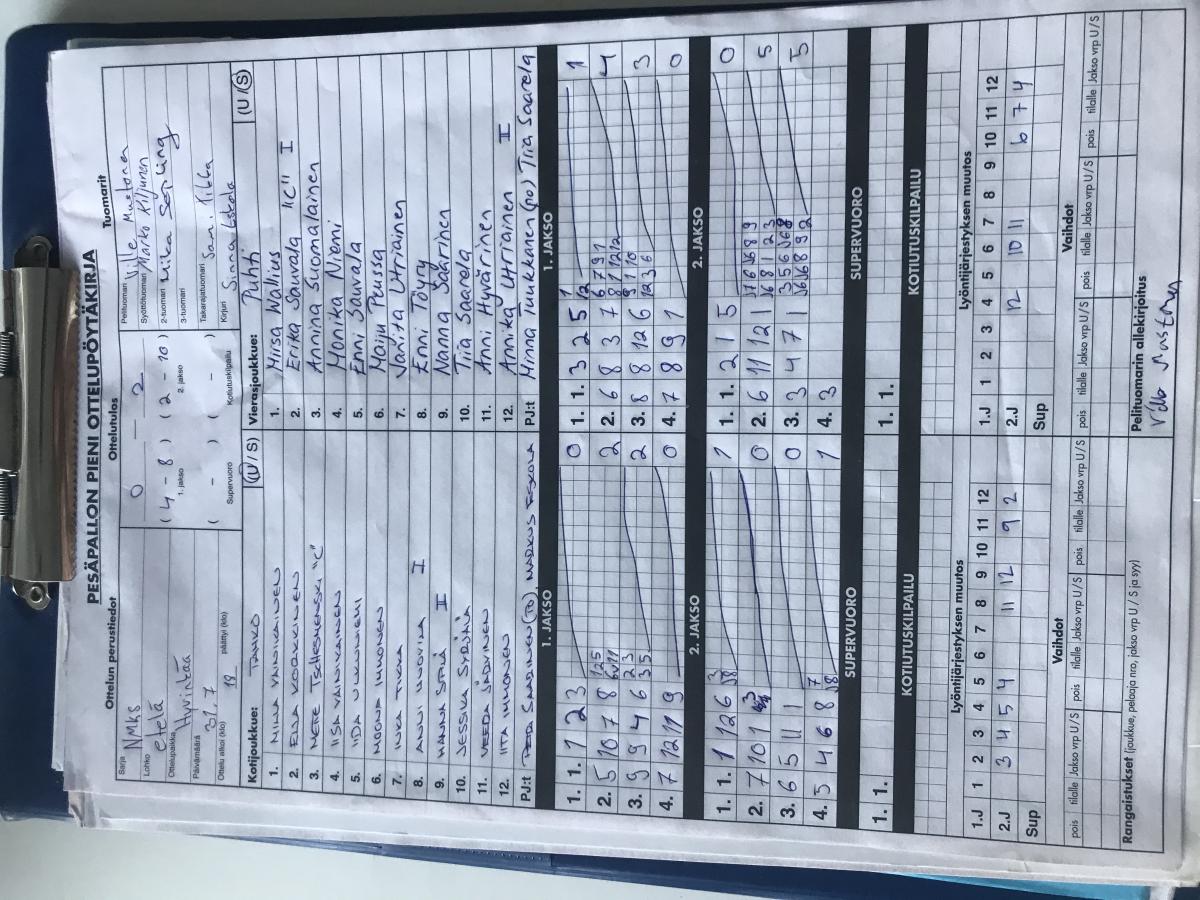 PESÄPALLON PIENI OTTELUPÖYTÄKIRJA
Ottelun perustiedot
Sarja NMKS
Lohko etelä
Ottelupaikka Hyvinkää
Päivämäärä 31.7
Ottelu alkoi (klo) 18 päättyi (klo)
Ottelutulos
0 – 2
( 4 – 8 ) ( 2 – 10 )
1. jakso 2. jakso
( – ) ( – )
Supervuoro Kotiutuskilpailu
Tuomarit
Pelituomari Ville Mustonen
Syöttötuomari Marko Kiljunen
2-tuomari Mika
3-tuomari
Takarajatuomari Sani Tikka
Kirjuri Sinna Eskola
Kotijoukkue: TAHKO (U / S)
1. MILLA VAINIKAINEN
2. ELLA KOOKKINEN
3. METE TSCHESMENSKI "C"
4. IISA VAINIKAINEN
5. IIDA UKKONIEMI
6. MOONA IHMONEN
7. INKA TIKKA
8. ANNI HUOVILA I
9. WANNA SPIÄ II
10. JESSIKA SYRJÄLÄ
11. VEERA JÄRVINEN
12. IITA IHMONEN
PJ:t PEPA SAARINEN (PO), MARKUS ESKOLA
Vierasjoukkue: Puhti (U / S)
1. Mirsa Wallius
2. Erika Sauvala "C" I
3. Annina Suomalainen
4. Monika Niemi
5. Enni Sauvala
6. Maiju Peussa
7. Janita Utriainen
8. Enni Töyry
9. Nanna Saarinen
10. Tiia Saarela
11. Anni Hyvärinen
12. Annika Utriainen II
PJ:t Minna Tuukkanen (po) Tiia Saarela
1. JAKSO 1. JAKSO
1. 1. 1 2 3 0
2. 5 10 7 8 2
3. 9 4 6 2
4. 7 12 11 9 0
1. 1. 3 2 5 1
2. 6 8 3 7 4
3. 8 8 12 6 3
4. 7 8 9 1 0
2. JAKSO 2. JAKSO
1. 1. 1 12 6 1
2. 7 10 1 0
3. 6 5 11 1 0
4. 5 4 6 8 1
1. 1. 2 1 5 0
2. 6 11 12 1 5
3. 3 4 7 1 5
4. 3
SUPERVUORO SUPERVUORO
1. 1. 1. 1.
KOTIUTUSKILPAILU KOTIUTUSKILPAILU
Lyöntijärjestyksen muutos
1.J 1 2 3 4 5 6 7 8 9 10 11 12
2.J 3 4 5 4 11 12 9 2
Sup
Lyöntijärjestyksen muutos
1.J 1 2 3 4 5 6 7 8 9 10 11 12
2.J 12 10 11 6 7 4
Sup
Vaihdot Vaihdot
pois tilalle Jakso vrp U / S pois tilalle Jakso vrp U / S pois tilalle Jakso vrp U / S
pois tilalle Jakso vrp U / S pois tilalle Jakso vrp U / S pois tilalle Jakso vrp U / S
Rangaistukset (joukkue, pelaaja nro, jakso vrp U / S ja syy)
Pelituomarin allekirjoitus